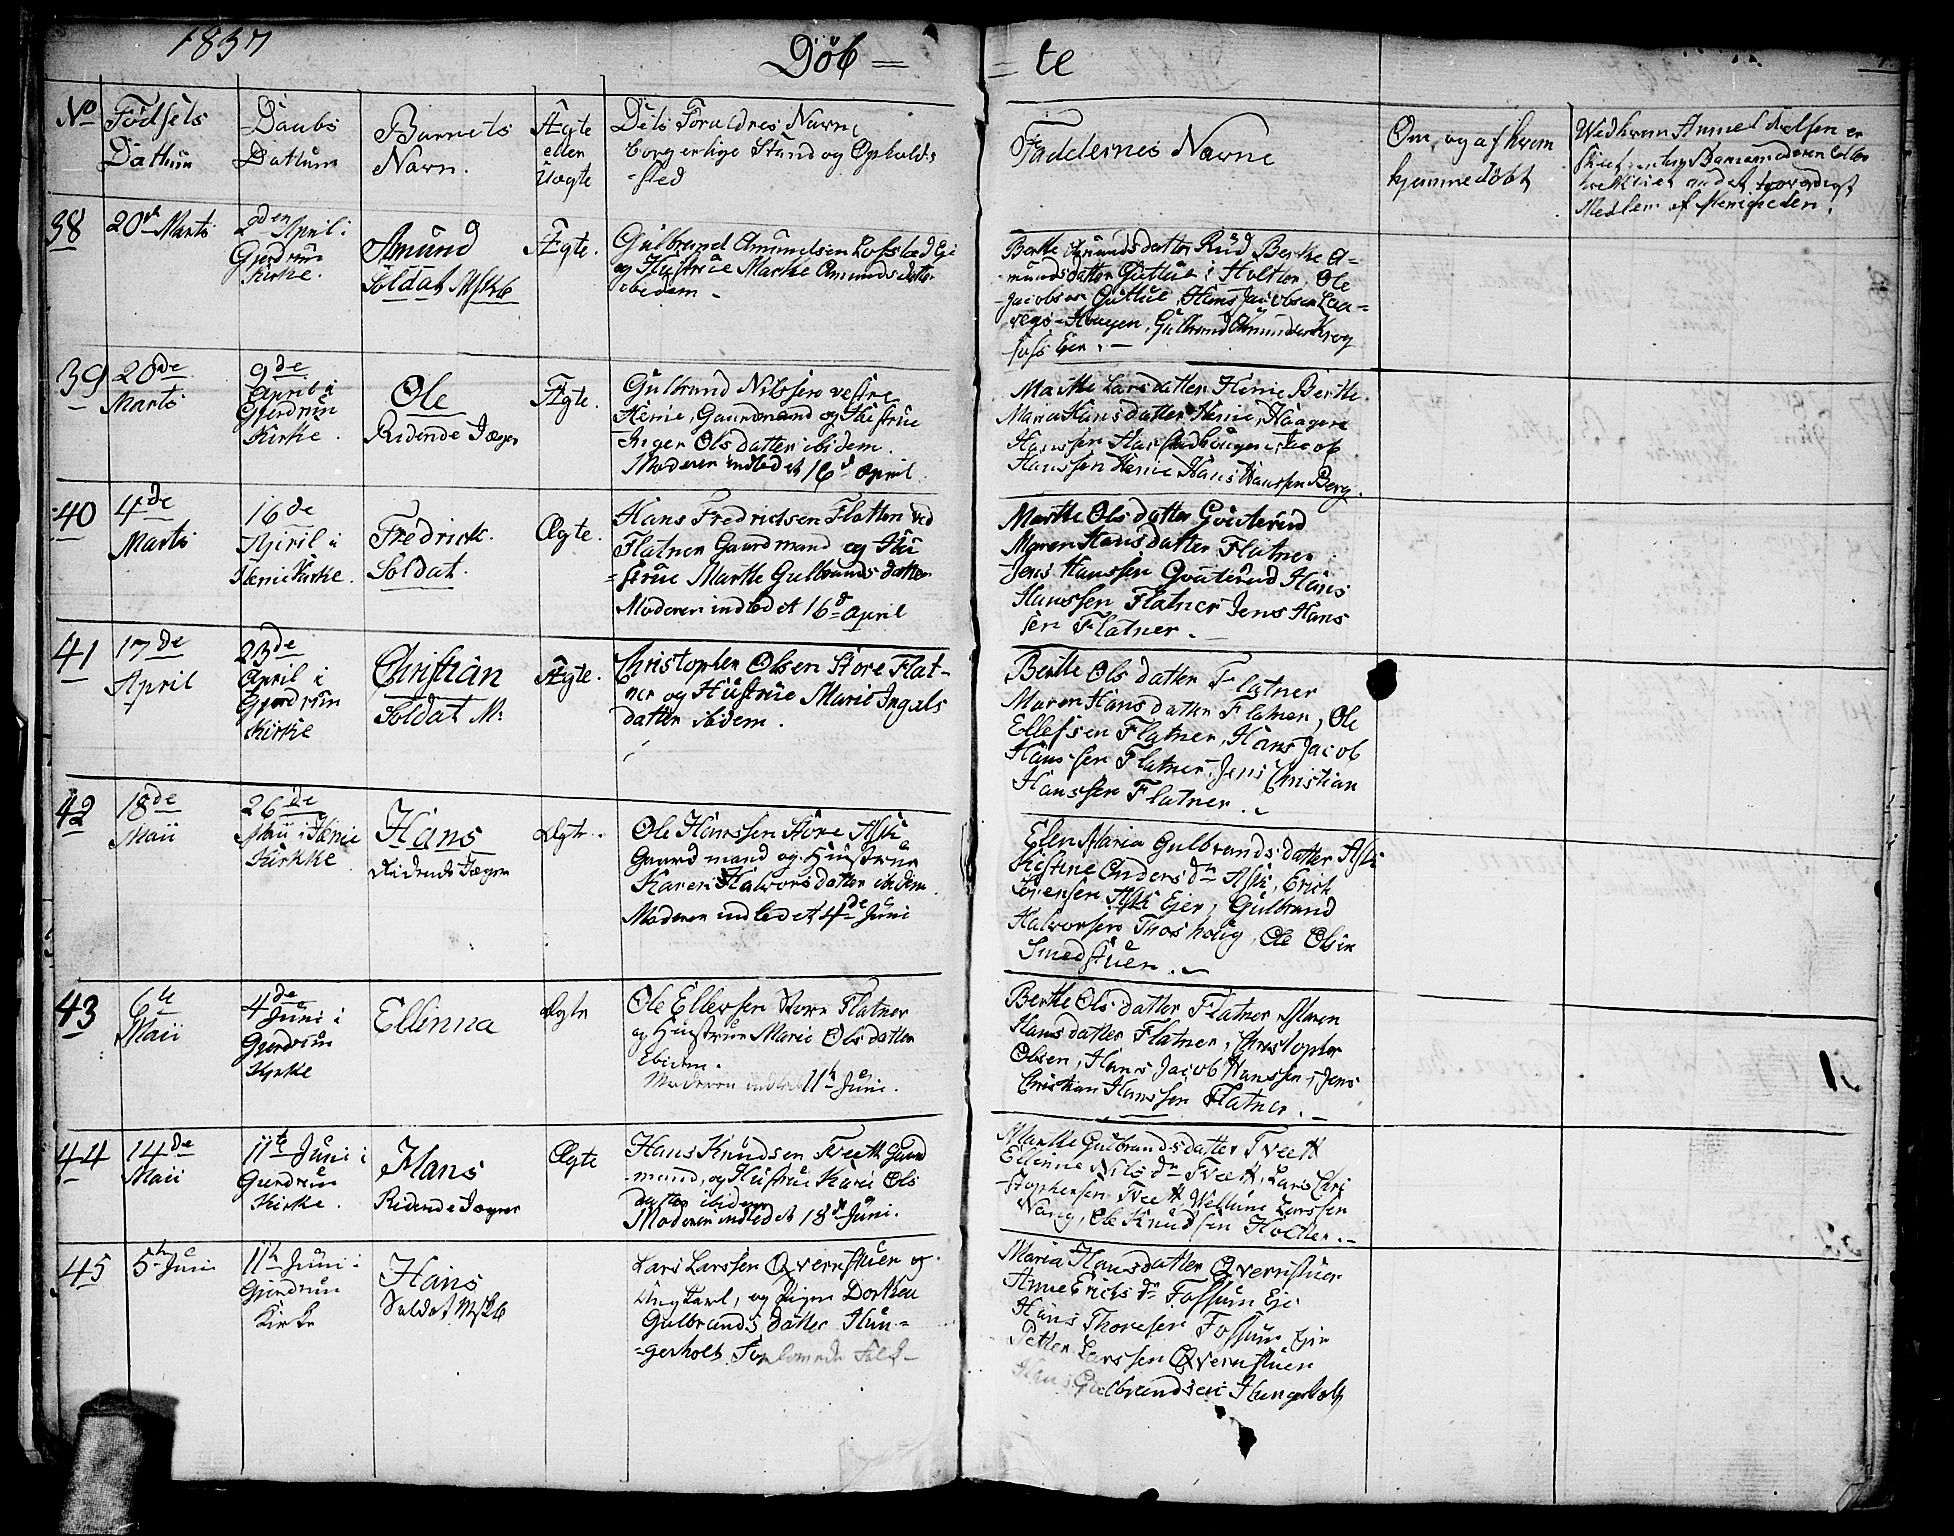 1837
Døb = = te
No
Fødsels
Dattum
Daabs
Dattum
Barnets
Navn.
Ægte
eller
Uægte
Dets Foreldres Navne
borgerlige Stand og Opholds
-sted
Faddernes Navne
Om, og af hvem
hjemmedøbt
38
20de Marts
2den April i
Gjerdrum
Kirke.
Amund
Soldat
Ægte.
Gulbrand Amundsen
og Hustrue Marthe Amundsdatter
ibidem -
Berthe Amundsdatter Rud Berthe A-
mundsdatter Gutlue i Holtter, Ole
Jacobsen Gutlue, Hans Jacobsen
Haugen, Gulbrand Amundsen Krog
foss Ejer. -
39
28de
Marts
9de
April i
Gjerdrum
Kirke.
Ole
Ridende Jæger
Ægte.
Gulbrand Nilssen vestre
Henie, Gaardmand og Hustrue
Inger Olsdatter ibidem.
Moderen indledet 16d April
Marthe Larsdatter Henie Berthe
Maria Hansdatter Henie, Haagen
Hanssen Jacob
Hanssen Henie Hans Hanssen Berg.
40
4de
Marts
16de
April i
Henie Kirke.
Fredrick.
Soldat.
Ægte.
Hans Fredricksen Flatten ved
Flatner Gaardmand og Hu
=strue Marthe Gulbrandsdatter
Moderen indledet 16d April
Marthe Olsdatter Qviterud
Maren Hansdatter Flatner
Jens Hanssen Qviterud Hans
Hanssen Flatner Jens Hans
sen Flatner. -
41
17de
April
23de
April i
Gjerdrum
Kirke
Christian
Soldat M:
Ægte.
Christopher Olsen Store Flat-
ner og Hustrue Marie Ingels
datter ibidem.
Berthe Olsdatter Flatner
Maren Hansdatter Flatner, Ole
Ellefsen Flatner, Hans Jacob
Hanssen Flatner, Jens Christian
Hanssen Flatner. -
42
18de
Maii
26de
Maii i Henie
Kirkke
Hans
Ridende Jæger
Ægte.
Ole Hanssen Store Ask
Gaardmand og Hustrue
Karen Halvorsdatter ibidem.
Moderen indledet 4de Juni
Elen Maria Gulbrandsdatter Ask
Kistine Anders dr Ask, Erick
Sørensen Ask Ejer, Gulbrand
Halvorsen Thoshoug, Ole Olsen
Smedstuen. -
43
6te
Maii
4de
Juni i
Gjerdrum
Kirke
Ellinna
Ægte
Ole Ellevsen Store Flatner
og Hustrue Marie Olsdatter
Ibidem.
Moderen indledet 11te Juni.
Berthe Olsdatter Flatner, Maren
Hansdatter Flatner, Christopher
Olsen, Hans Jacob Hanssen, Jens
Christian Hanssen Flatner. -
44
14de
Maii
11te Juni i
Gjerdrum
Kirke.
Hans
Ridende Jæger
Ægte
Hans Knudsen Tveett Gaard
-mand, og Hustrue Kari Ols
datter ibidem
Moderen indledet 18de Juni.
Marthe Gulbrandsdatter Tveett
Ellenne Nils dr Tveett, Lars Chri
stophersen Tveett Larssen
Wang, Ole Knudsen Holter. -
45
5te Juni
11te Juni i
Gjerdrum
Kirke
Hans
Soldat
Lars Larssen Qvernstuen og
Ungkarl, og Pigen Dorthea
Gulbrands datter Hun-
-gerholt
Maria Hansdatter Qvernstuen
Anne Ericks dr Fossum Eje
Hans Thoresen Fossum Eje
Petter Larssen Qvernstuen
Hans Gulbrandsen Hungerholt